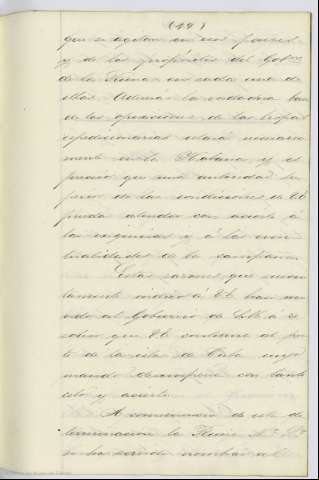 (148)
que se agitan en esos paises
y de los propósitos del Gob.no
de la Reina en cada una de
ellas. Además la verdadera base
de las operaciones de las tropas
expedicionarias estará necesaria
mente en la Habana y es
preciso que una autoridad su
perior de las condiciones de V.E.
pueda atender con acierto á
las exigencias y á las even
tualidades de la campaña.
Estas razones que
tamente indico á V.E. han mo
vido al Gobierno de S.M. á re
solver que V.E. continue al fren
te de la isla de Cuba cuyo
mando desempeña con tanto
celo y acierto.
A consecuencia de esta de
terminacion la Reina
se ha servido nombrar